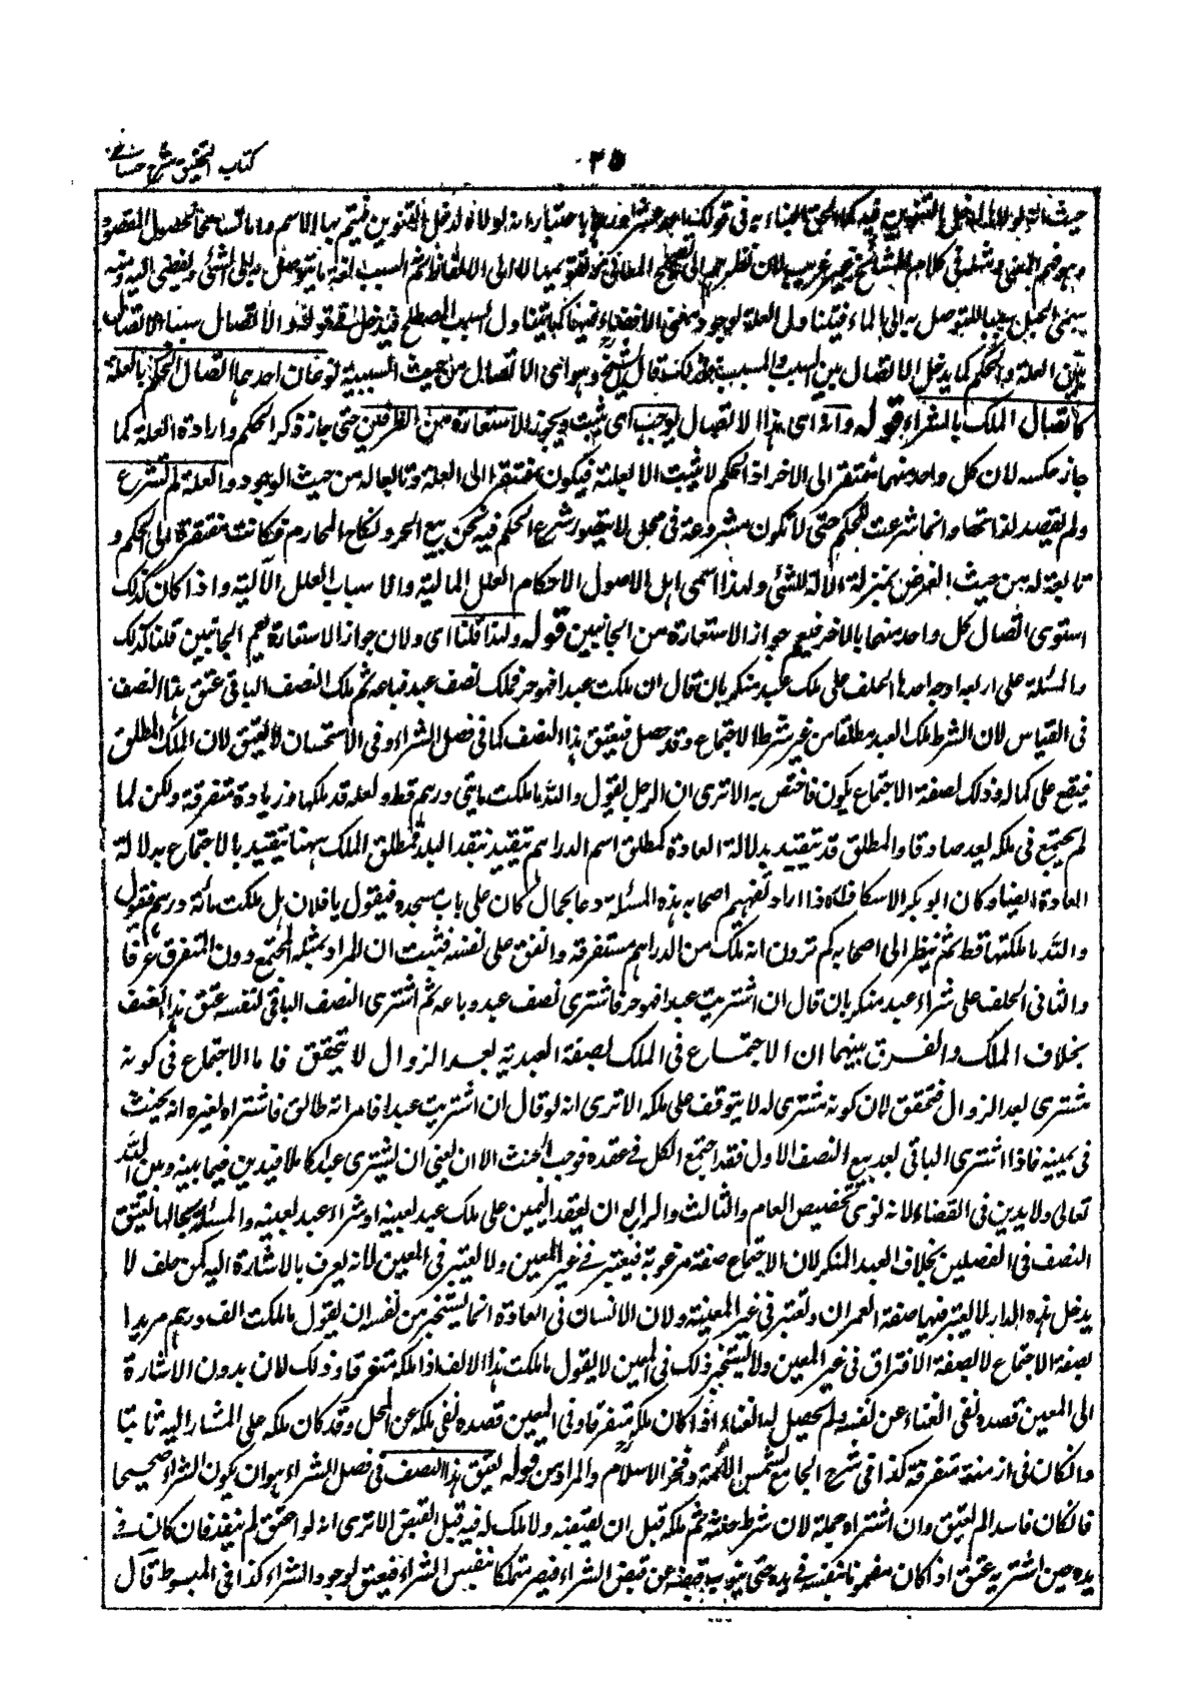 كتاب التحقيق شرح حسامى
٢٥
حيث انه لولاها لدخل التنوين فيه كما الحق البناء به فى قولك احد عشر باعتبار انه لولاه لدخل التنوين فيتم بها الاسم واما لحصول المقصود
وهو فهم المعنى ومثله فى كلام المشائخ غير غريب لان نظرهم الى تصحيح المعانى لا الى الالفاظ ثم السبب لغة ما يتوصل به الى الشئ ويفضى اليه ومنه
يسمى الحبل سببا للتوصل به الى الماء فيتناول العلة لوجود معنى الافضاء فيها كما يتناول السبب المصطلح فيدخل تحت قوله والاتصال سببا الاتصال
بين العلة والحكم كما يدخل الاتصال بين السبب والمسبب فلذلك قال الشيخ وهو اى الاتصال من حيث السببية نوعان احدهما اتصال الحكم بالعلة
كاتصال الملك بالشراء قوله وانه اى هذا الاتصال يوجب اى يثبت ويجوز الاستعارة من الطرفين حتى جاز ذكر الحكم وارادة العلة كما
جاز عكسه لان كل واحد منهما مفتقر الى الاخر اذ الحكم لا يثبت الا بعلته فيكون مفتقرا الى العلة وتابعا له من حيث الوجود والعلة لم تشرع
ولم يقصد لذاتها وانما شرعت للحكم حتى لا تكون مشروعة فى محل لا يتصور شرع الحكم فيه نحو بيع الحر ونكاح المحارم فكانت مفتقرة الى الحكم و
تابعة له من حيث الغرض بمنزلة الآلة للشئ ولهذا سمى اهل الاصول الاحكام العلل المالية والاسباب العلل الآلية واذا كان كذلك
استوى اتصال كل واحد منهما بالاخر فيعم جواز الاستعارة من الجانبين قوله ولهذا قلنا اى ولان جواز الاستعارة يعم الجانبين قلنا كذلك
والمسئلة على اربعة اوجه احدها الحلف على ملك عبد منكر بان قال ان ملكت عبدا فهو حر فملك نصف عبد فباعه ثم ملك النصف الباقى عتق هذا النصف
فى القياس لان الشرط ملك العبد مطلقا من غير شرط الاجتماع وقد حصل فيعتق هذا النصف كما فى فصل الشراء وفى الاستحسان لا يعتق لان الملك المطلق
فيقع على كماله وذلك لصفة الاجتماع يكون فاختص به الا ترى ان الرجل يقول والله ما ملكت مايتى درهم قط ولعله قد ملكها وزيادة متفرقة ولكن لما
لم يجتمع فى ملكه يعد صادقا والمطلق قد يتقيد بدلالة العادة كمطلق اسم الدراهم يتقيد بنقد البلد فمطلق الملك ههنا يتقيد بالاجتماع بدلالة
العادة ايضا وكان ابو بكر الاسكاف اذا اراد تفهيم اصحابه هذه المسئلة دعا بجمال كان على باب مسجده فيقول يا فلان هل ملكت مائة درهم فيقول
والله ما ملكتها قط ثم ينظر الى اصحابه كم ترون انه ملك من الدراهم متفرقة وانفق على نفسه فثبت ان المراد بمثله المجتمع دون المتفرق عرفا
والثانى الحلف على شراء عبد منكر بان قال ان اشتريت عبدا فهو حر فاشترى نصف عبد وباعه ثم اشترى النصف الباقى لنفسه عتق هذا النصف
بخلاف الملك والفرق بينهما ان الاجتماع فى الملك بصفة العبدية بعد الزوال لا يتحقق فاما الاجتماع فى كونه
مشترى بعد الزوال فتحقق لان كونه مشترى له لا يتوقف على ملكه الا ترى انه لو قال ان اشتريت عبدا فامراته طالق فاشتراه لغيره انه يحنث
فى يمينه فاذا اشترى الباقى بعد بيع النصف الاول فقد اجتمع الكل فى عقده فوجب الحنث الا ان يعنى ان يشترى عبدا كاملا فيدين فيما بينه وبين الله
تعالى ولا يدين فى القضاء لانه نوى تخصيص العام والثالث والرابع ان يعقد اليمين على ملك عبد بعينه او شراء عبد بعينه والمسئلة بحالها يعتق
النصف فى الفصلين بخلاف العبد المنكر لان الاجتماع صفة مرغوبة فيعتبر فى غير المعين ولا يعتبر فى المعين لانه يعرف بالاشارة اليه كمن حلف لا
يدخل هذه الدار لا يعتبر فيها صفة العمران وتعتبر فى غير المعينة ولان الانسان فى العادة انما يستخبر من نفسه ان يقول ما ملكت الف درهم مريدا
بصفة الاجتماع لا بصفة الافتراق فى غير المعين ولا يستخبر ذلك فى المعين لا يقول ما ملكت هذا الالف اذا ملكه متفرقا وذلك لان بدون الاشارة
الى المعين قصده نفى الغناء عن نفسه ولم يحصل له الغناء اذا كان ملكه متفرقا وفى المعين قصده نفى ملكه عن المحل وقد كان ملكه على المشار اليه ثابتا
وانكان فى ازمنة متفرقة كذا فى شرح الجامع لشمس الائمة وفخر الاسلام والمراد من قوله يعتق هذا النصف فى فصل الشراء هو ان يكون الشراء صحيحا
فانكان فاسدا لم يعتق وان اشتراه جملة لان شرط حنثه ثم ملكه قبل ان يقبضه ولا ملك له فيه قبل القبض الا ترى انه لو اعتق لم ينفذ فان كان فى
يده حين اشتريه عتق اذا كان مضمونا بنفسه فى يده حتى ينوب قبضه عن قبض الشراء فيصير متملكا بنفس الشراء فيعتق لوجود الشراء كذا فى المبسوط قال